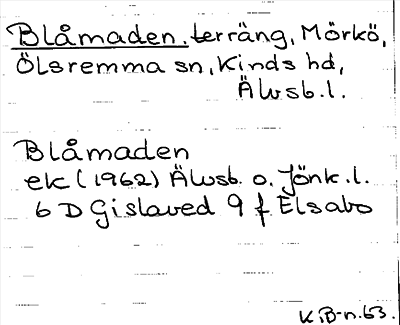 Blåmaden, terräng, Mörkö,
Ölsremma sn, Kinds hd,
Älvsb. l.
Blåmaden
ek (1962) Älvsb. o. Jönk. l.
6 D Gislaved 9 f Elsabo
KB-n.63.